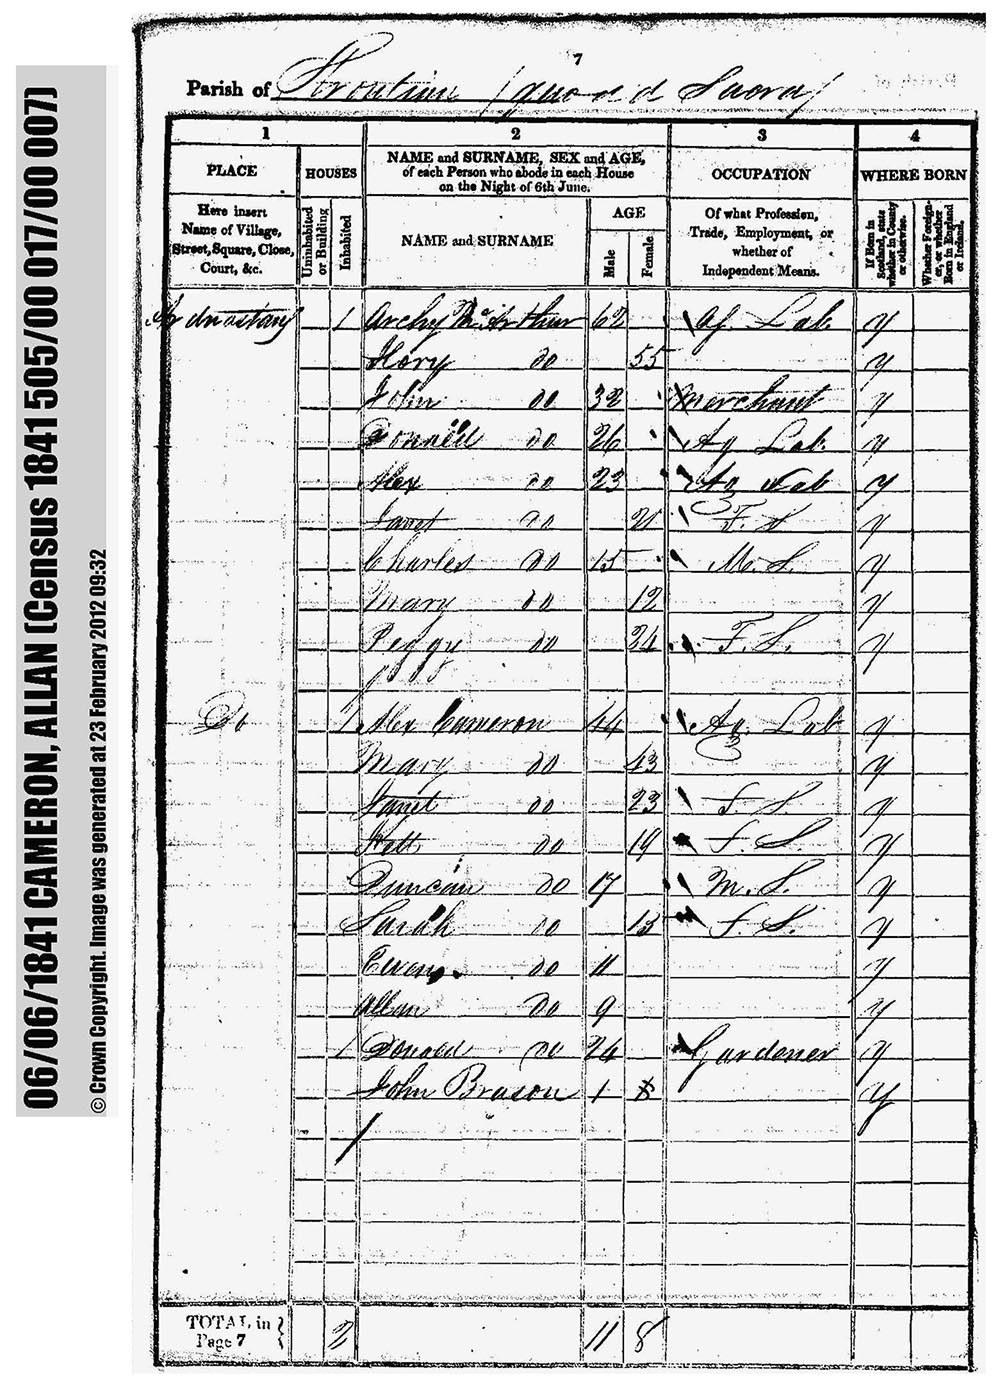 06/06/1841 CAMERON, ALLAN (Census 1841 505/00 017/00 007)
© Crown Copyright. Image was generated at 23 February 2012 09:32
7
Parish of Strontian (quoad Sacra)
1 2 3 4
PLACE
HOUSES
NAME and SURNAME, SEX and AGE,
of each Person who abode in each House
on the Night of 6th June.
OCCUPATION
WHERE BORN
Here insert
Name of Village,
Street, Square, Close,
Court, &c.
Uninhabited
or Building
Inhabited
NAME and SURNAME
AGE
Male
Female
Of what Profession,
Trade, Employment, or
whether of
Independent Means.
If Born in
Scotland, state
whether in County
or otherwise.
Whether Foreign-
er, or whether
Born in England
or Ireland.
Ardnastang 1 Archy McArthur 62 Ag. Lab. y
do 55 y
John do 32 Merchant y
Donald do 26 Ag Lab. y
Alex do 23 Ag Lab y
Janet do 20 F. S y
Charles do 15 M. S. y
Mary do 12 y
Peggy do 24 F. S. y
Do 1 Alex Cameron 44 Ag. Lab y
Mary do 43 y
Janet do 23 F. S. y
do 19 F. S. y
Duncan do 17 M. S. y
Sarah do 15 F. S. y
Ewen do 11 y
Allan do 9 y
1 Donald do 24 Gardener y
John Brason 1 y
TOTAL in
Page 7 2 11 8